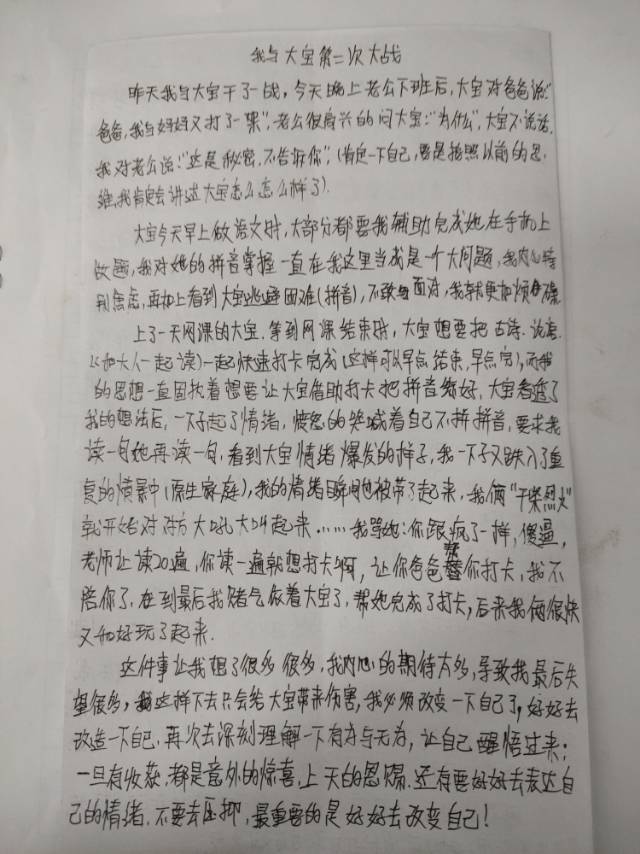 我与大宝第二次大战
昨天我与大宝干了一战，今天晚上老公下班后，大宝对爸爸说：“
爸爸，我与好好又打了一架”，老公很高兴的问大宝：“为什么”，大宝不说话，
我对老公说：“这是秘密，不告诉你”，（肯定一下自己，要是按照以前的思
维，我肯定会讲述大宝怎么怎么样了）.
大宝今天早上做语文时，大部分都要我辅助完成她在手机上
做题，我对她的拼音掌握一直在我这里当成是一个大问题，我内心特
别焦虑，再加上看到大宝逃避困难（拼音），不敢面对，我就更加烦躁
上了一天网课的大宝，等到网课结束时，大宝想要把古诗、说
（和大人一起读）一起快速打卡完成（这样可以早点结束，早点完），而我
的思想一直固执着想要让大宝借助打卡把拼音练好，大宝看透了
我的想法后，一下子起了情绪，愤怒的哭喊着自己不拼拼音，要求我
读一句她再读一句，看到大宝情绪爆发的样子，我一下子又跌入了重
复的情景中（原生家庭），我的情绪瞬间也被带了起来，我俩“干柴烈火”
就开始对对方大吼大叫起来……我骂她：你跟疯了一样，傻逼，
老师让读20遍，你读一遍就想打卡啊，让你爸爸帮你打卡，我不
陪你了，在到最后我赌气依着大宝了，帮她完成了打卡，后来我俩很快
又和好玩了起来.
这件事让我想了很多很多，我内心的期待太多，导致我最后失
望很多，我这样下去只会给大宝带来伤害，我必须改变一下自己了，好好去
改造一下自己，再次去深刻理解一下有为与无为，让自己醒悟过来；
一旦有收获，都是意外的惊喜，上天的恩赐.还有要好好去表达自
己的情绪，不要去压抑，最重要的是好好去改变自己！